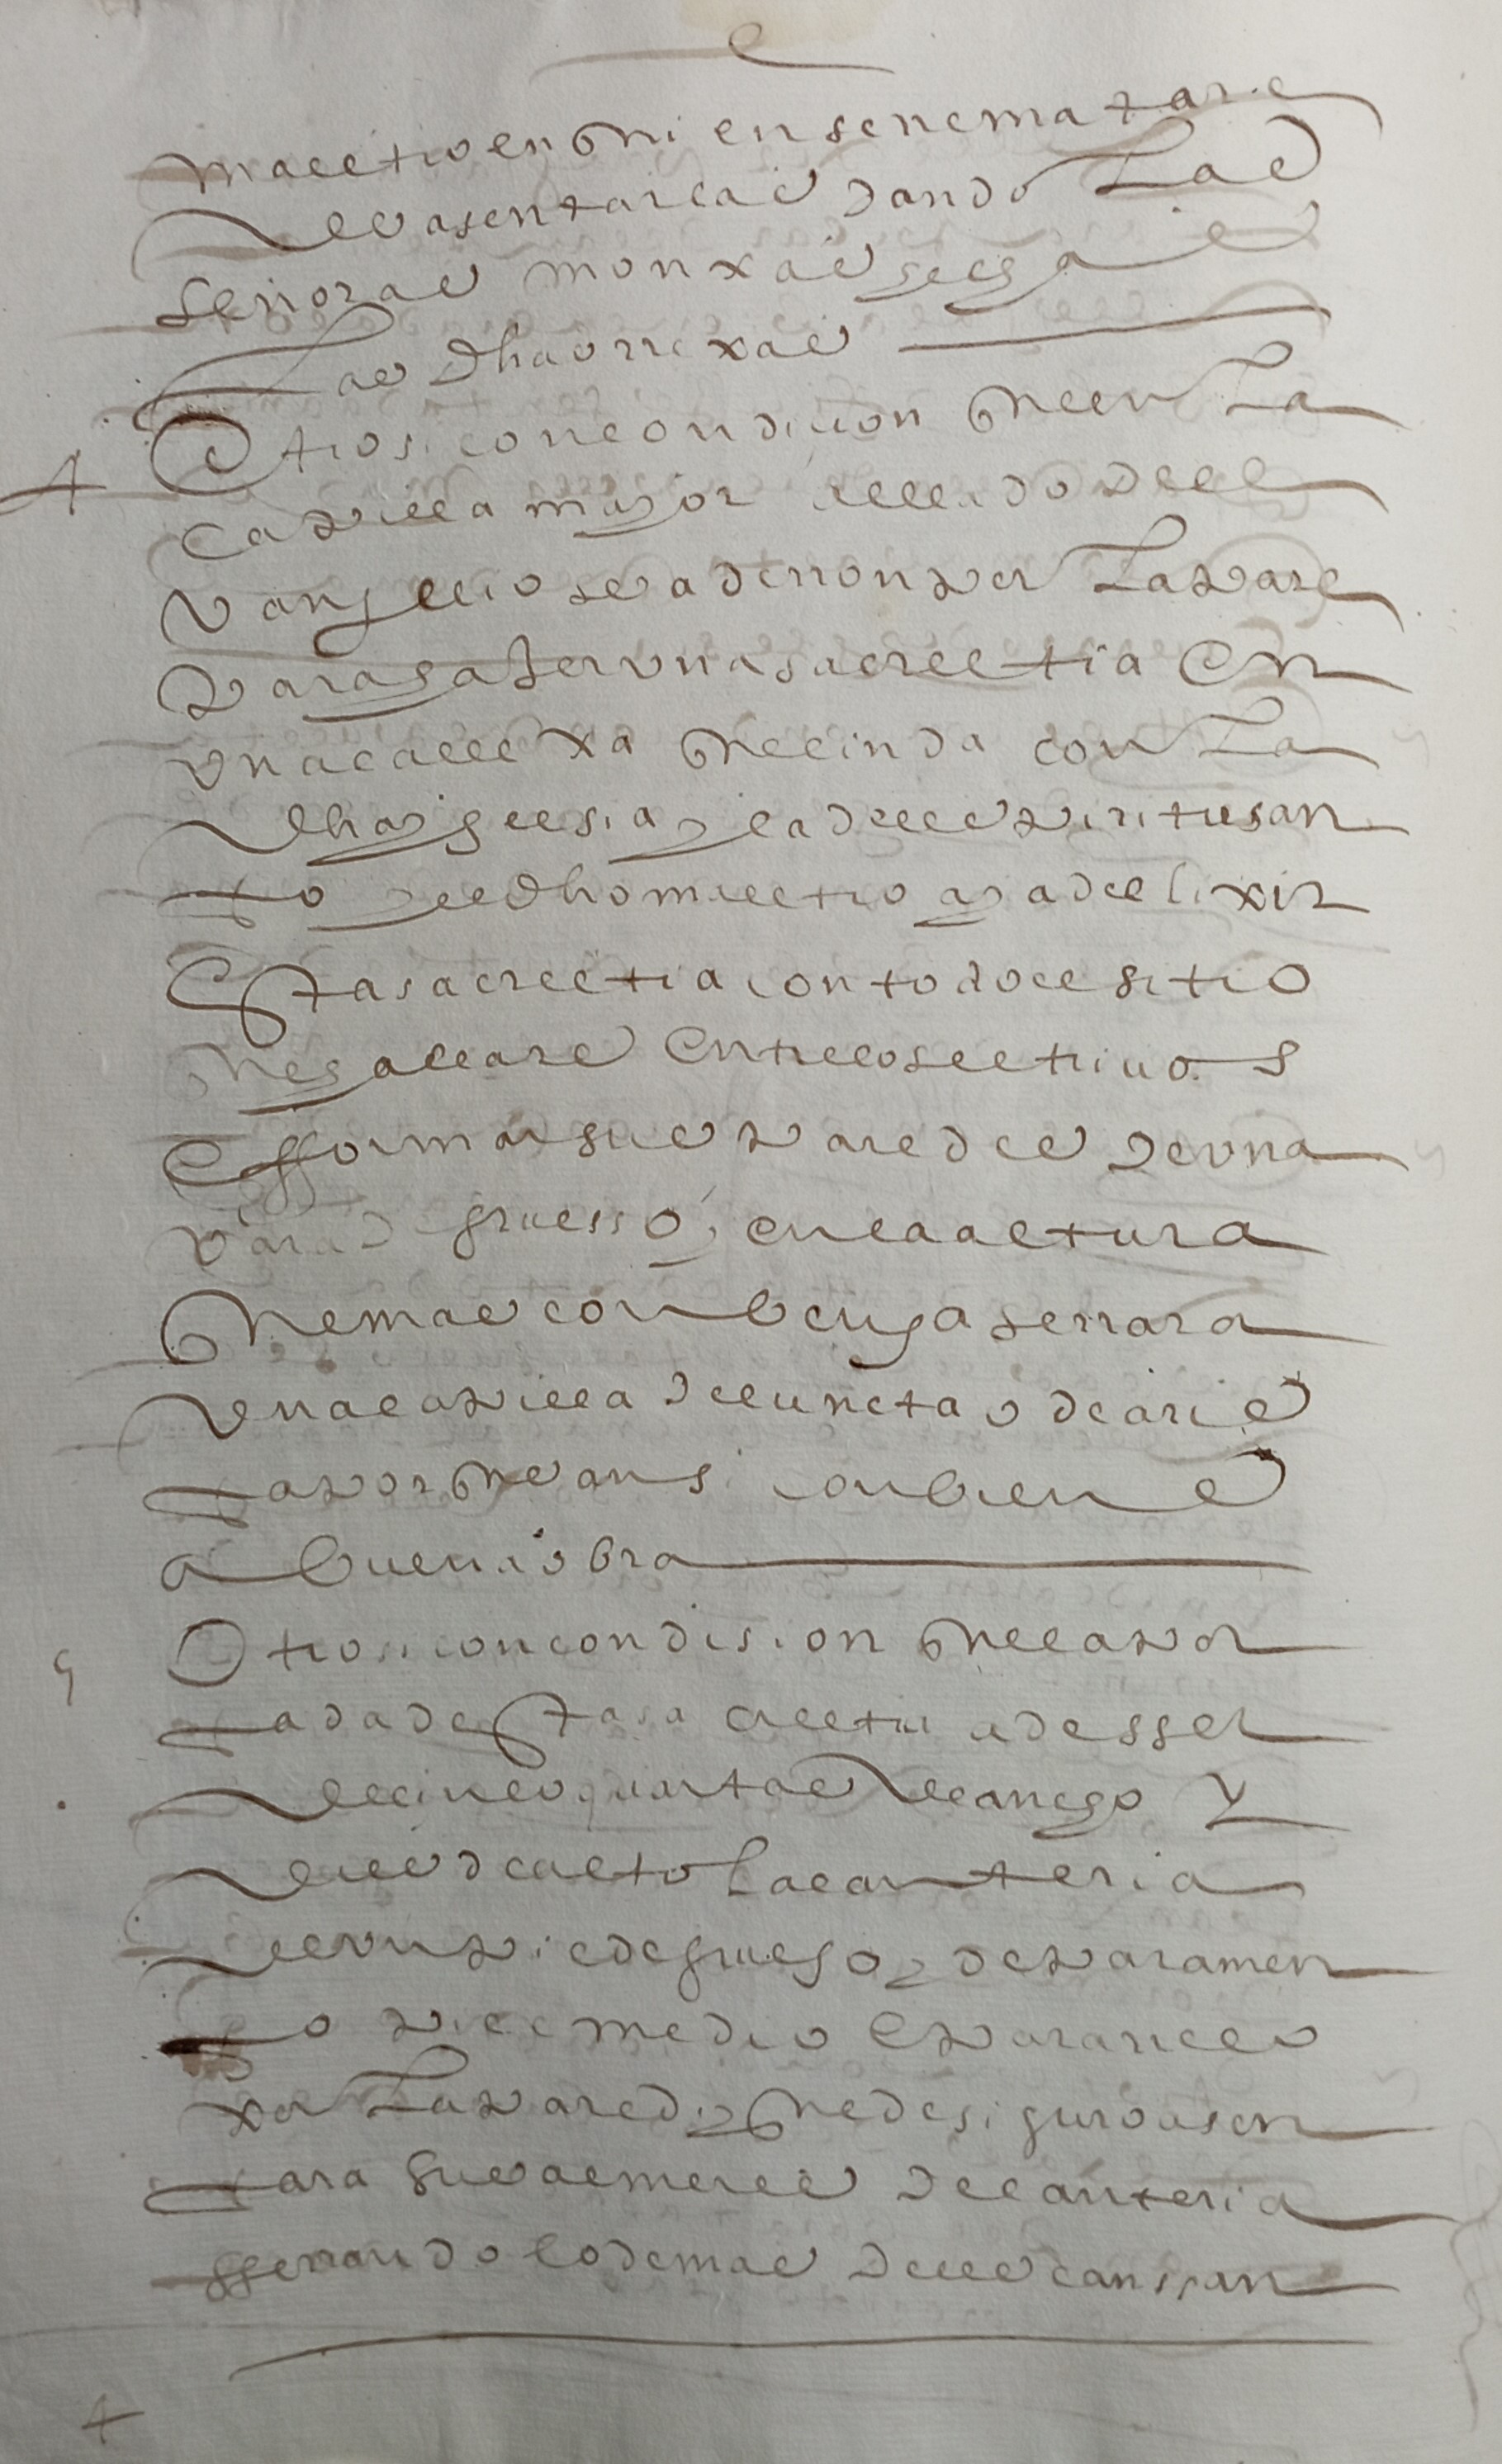 maestro en quien se rematare
los asentarlas dando las
señoras monxas hechas
las dhas rrexas
4 Otrosi con condicion que en la
capilla mayor al lado del e
vangelio se a de rronper la pare
para hazer una sacrestia en
una calle xa que linda con la
dha yglesia y la del espiritu san
to y el dho maestro a de elixir
esta sacrestia con todo el sitio
que hallare entre los estrivos
e fformar sus paredes de una
vara de gruesso y en la altura
que mas convenga serrara
una capilla de luneta o de aris
ta por que ansi conviene
a buena obra
5 Otrosi con condision que la por
tada desta sacrestia a de sser
de cinco quartas de ancho y
dies de alto la canteria
de un pie de grueso y de paramen
to pie e medio e para enca
xar la pared y que desiguro asen
tara sus almeres de canteria
sserrando lo demas del es canssan